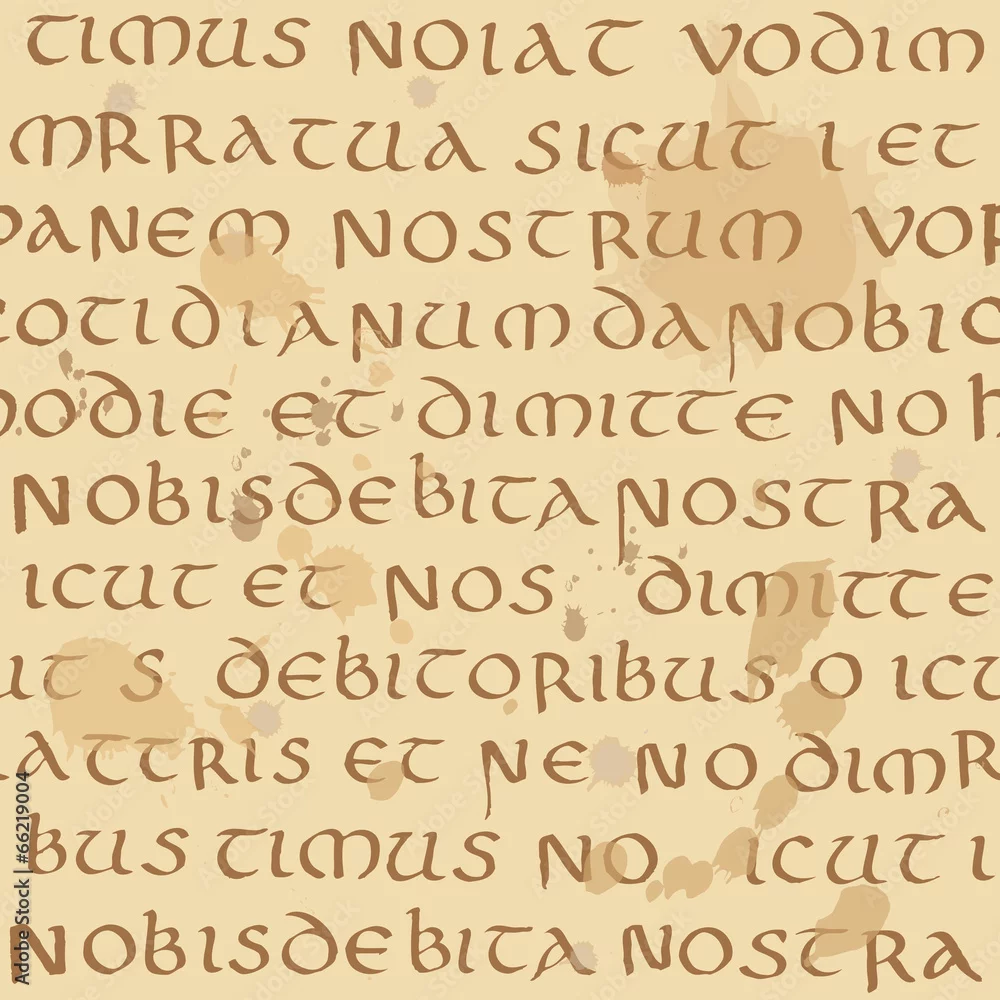 TIMUS NOIAT VODIM
MRRATUA SICUT I ET
PANEM NOSTRUM VOR
COTIDIANUM DA NOBIC
HODIE ET DIMITTE NO H
NOBISDEBITA NOSTRA
ICUT ET NOS DIMITTE
UT S DEBITORIBUS O ICU
ATTRIS ET NE NO DIMR
BUS TIMUS NO ICUT I
NOBISDEBITA NOSTRA
Adobe Stock | #66219004